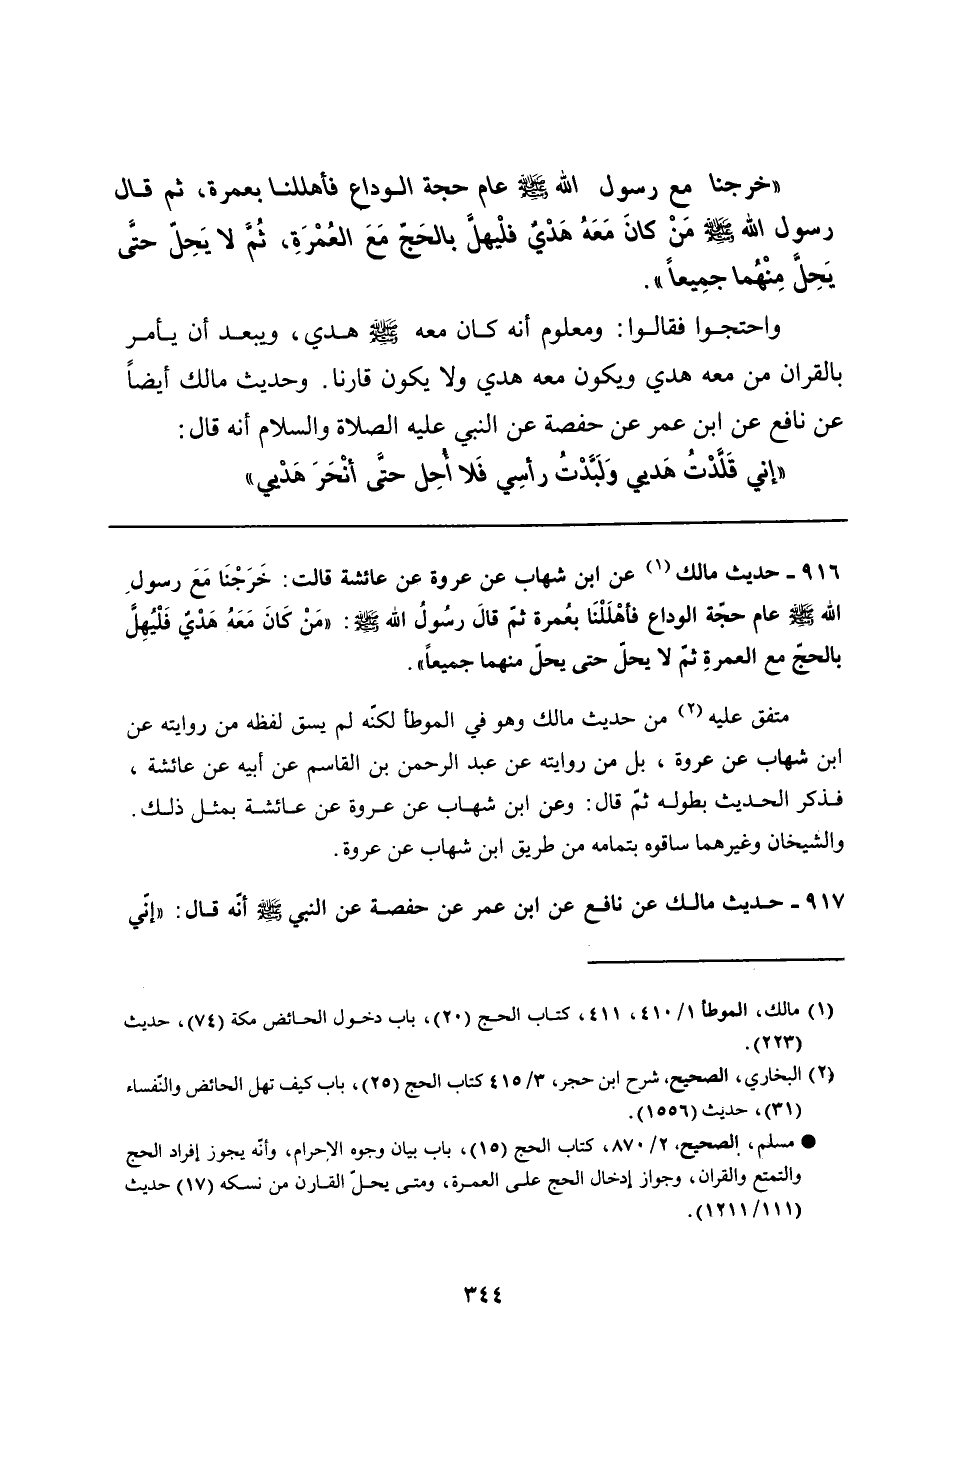 «خرجنا مع رسول الله ﷺ عام حجة الوداع فأهللنا بعمرة، ثم قال
رسول الله ﷺ مَنْ كانَ مَعَهُ هَدْيٌ فلْيهلَّ بالحَجّ مَعَ العُمْرَةِ، ثُمَّ لا يَحِلّ حتَّى
يَحِلَّ مِنْهُما جمِيعاً».
واحتجوا فقالوا: ومعلوم أنه كان معه ﷺ هدي، ويبعد أن يأمر
بالقران من معه هدي ويكون معه هدي ولا يكون قارنا. وحديث مالك أيضاً
عن نافع عن ابن عمر عن حفصة عن النبي عليه الصلاة والسلام أنه قال:
«إني قَلَّدْتُ هَديي وَلَبَّدْتُ رأسِي فَلا أُحِل حتَّى أنْحَرَ هَدْيي»
٩١٦ - حديث مالك (١) عن ابن شهاب عن عروة عن عائشة قالت: خَرَجْنَا مَعَ رسولِ
الله ﷺ عام حجّة الوداع فأهْلَلْنَا بعُمرة ثمّ قالَ رسُولُ الله ﷺ: «مَنْ كَانَ مَعَهُ هَدْيٌ فَلْيُهِلَّ
بالحجّ مع العمرةِ ثمّ لا يحلّ حتى يحلّ منهما جميعاً».
متفق عليه (٢) من حديث مالك وهو في الموطأ لكنّه لم يسق لفظه من روايته عن
ابن شهاب عن عروة ، بل من روايته عن عبد الرحمن بن القاسم عن أبيه عن عائشة ،
فذكر الحديث بطوله ثمّ قال: وعن ابن شهاب عن عروة عن عائشة بمثل ذلك.
والشيخان وغيرهما ساقوه بتمامه من طريق ابن شهاب عن عروة.
٩١٧ - حديث مالك عن نافع عن ابن عمر عن حفصة عن النبي ﷺ أنّه قال: «إنّي
(١) مالك، الموطأ ١/ ٤١٠، ٤١١، كتاب الحج (٢٠)، باب دخول الحائض مكة (٧٤)، حديث
(٢٢٣).
(٢) البخاري، الصحيح، شرح ابن حجر، ٣/ ٤١٥ كتاب الحج (٢٥)، باب كيف تهل الحائض والنّفساء
(٣١)، حديث (١٥٥٦).
● مسلم، الصحيح، ٢/ ٨٧٠، كتاب الحج (١٥)، باب بيان وجوه الإحرام، وأنّه يجوز إفراد الحج
والتمتع والقران، وجواز إدخال الحج على العمرة، ومتى يحلّ القارن من نسكه (١٧) حديث
(١١١/ ١٢١١).
٣٤٤